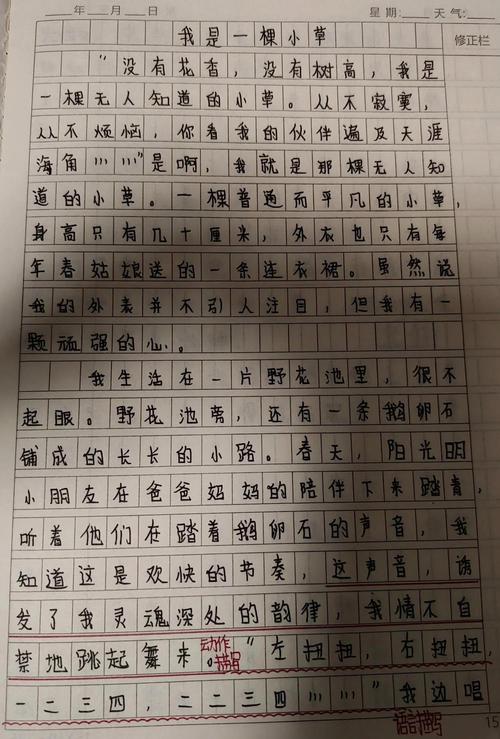 ____年___月___日 星期:____ 天气:____
我是一棵小草 修正栏
“没有花香，没有树高，我是
一棵无人知道的小草。从不寂寞，
从不烦恼，你看我的伙伴遍及天涯
海角……”是啊，我就是那棵无人知
道的小草。一棵普通而平凡的小草，
身高只有几十厘米，外衣也只有每
年春姑娘送的一条连衣裙。虽然说
我的外表并不引人注目，但我有一
颗顽强的心。
我生活在一片野花池里，很不
起眼。野花池旁，还有一条鹅卵石
铺成的长长的小路。春天，阳光明
小朋友在爸爸妈妈的陪伴下来踏青，
听着他们在踏着鹅卵石的声音，我
知道这是欢快的节奏，这声音，诱
发了我灵魂深处的韵律，我情不自
禁地跳起舞来。“左扭扭，右扭扭，
动作描写
一二三四，二二三四……”我边唱
语言描写
15